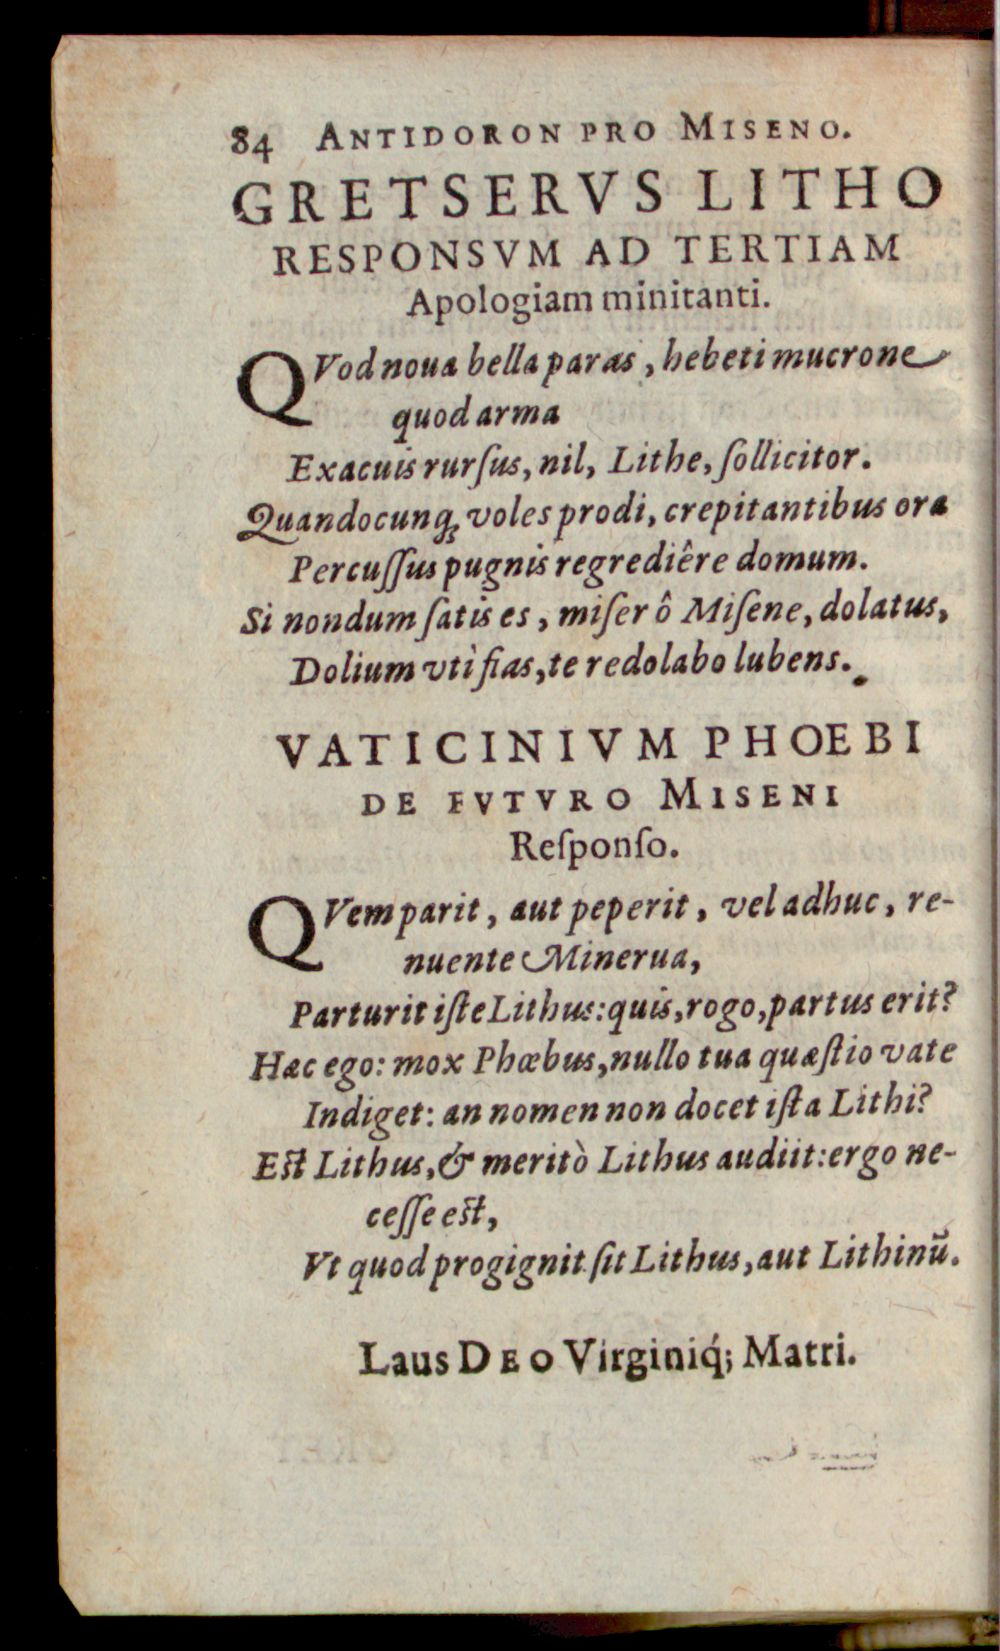 84 ANTIDORON PRO MISENO.
GRETSERVS LITHO
RESPONSVM AD TERTIAM
Apologiam minitanti.
QVod noua bella paras, hebeti mucrone
quod arma
Exacuis rurſus, nil, Lithe, ſollicitor.
Quandocunq; voles prodi, crepitantibus ora
Percuſſus pugnis regrediêre domum.
Si nondum ſatis es, miſer ô Miſene, dolatus,
Dolium vtì fias, te redolabo lubens.
VATICINIVM PHOEBI
DE FVTVRO MISENI
Reſponſo.
QVem parit, aut peperit, vel adhuc, re-
nuente Minerua,
Parturit iſte Lithus: quis, rogo, partus erit?
Hæc ego: mox Phœbus, nullo tua quæſtio vate
Indiget: an nomen non docet iſta Lithi?
Eſt Lithus, & meritò Lithus audiit: ergo ne-
ceſſe eſt,
Vt quod progignit ſit Lithus, aut Lithinũ.
Laus DEO Virginiq́; Matri.